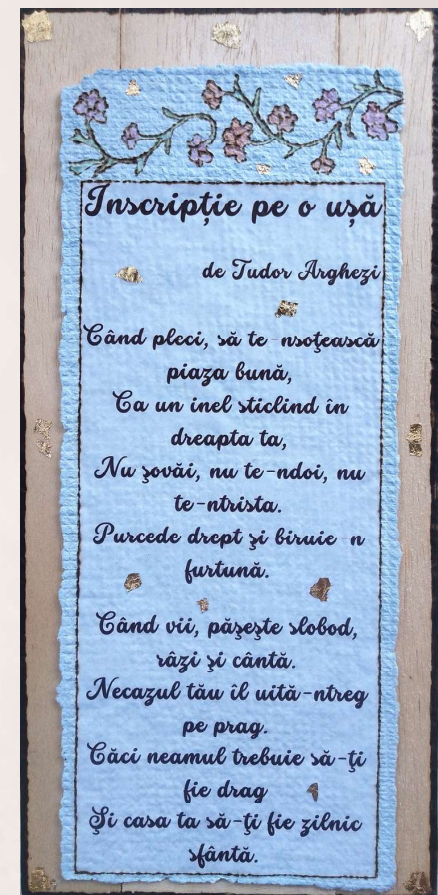 Inscripție pe o ușă
de Tudor Arghezi
Când pleci, să te nsoţească
piaza bună,
Ca un inel sticlind în
dreapta ta,
Nu şovăi, nu te-ndoi, nu
te-ntrista.
Purcede drept şi biruie n
furtună.
Când vii, păşeşte slobod,
râzi şi cântă.
Necazul tău îl uită-ntreg
pe prag.
Căci neamul trebuie să-ţi
fie drag
Şi casa ta să-ţi fie zilnic
sfântă.